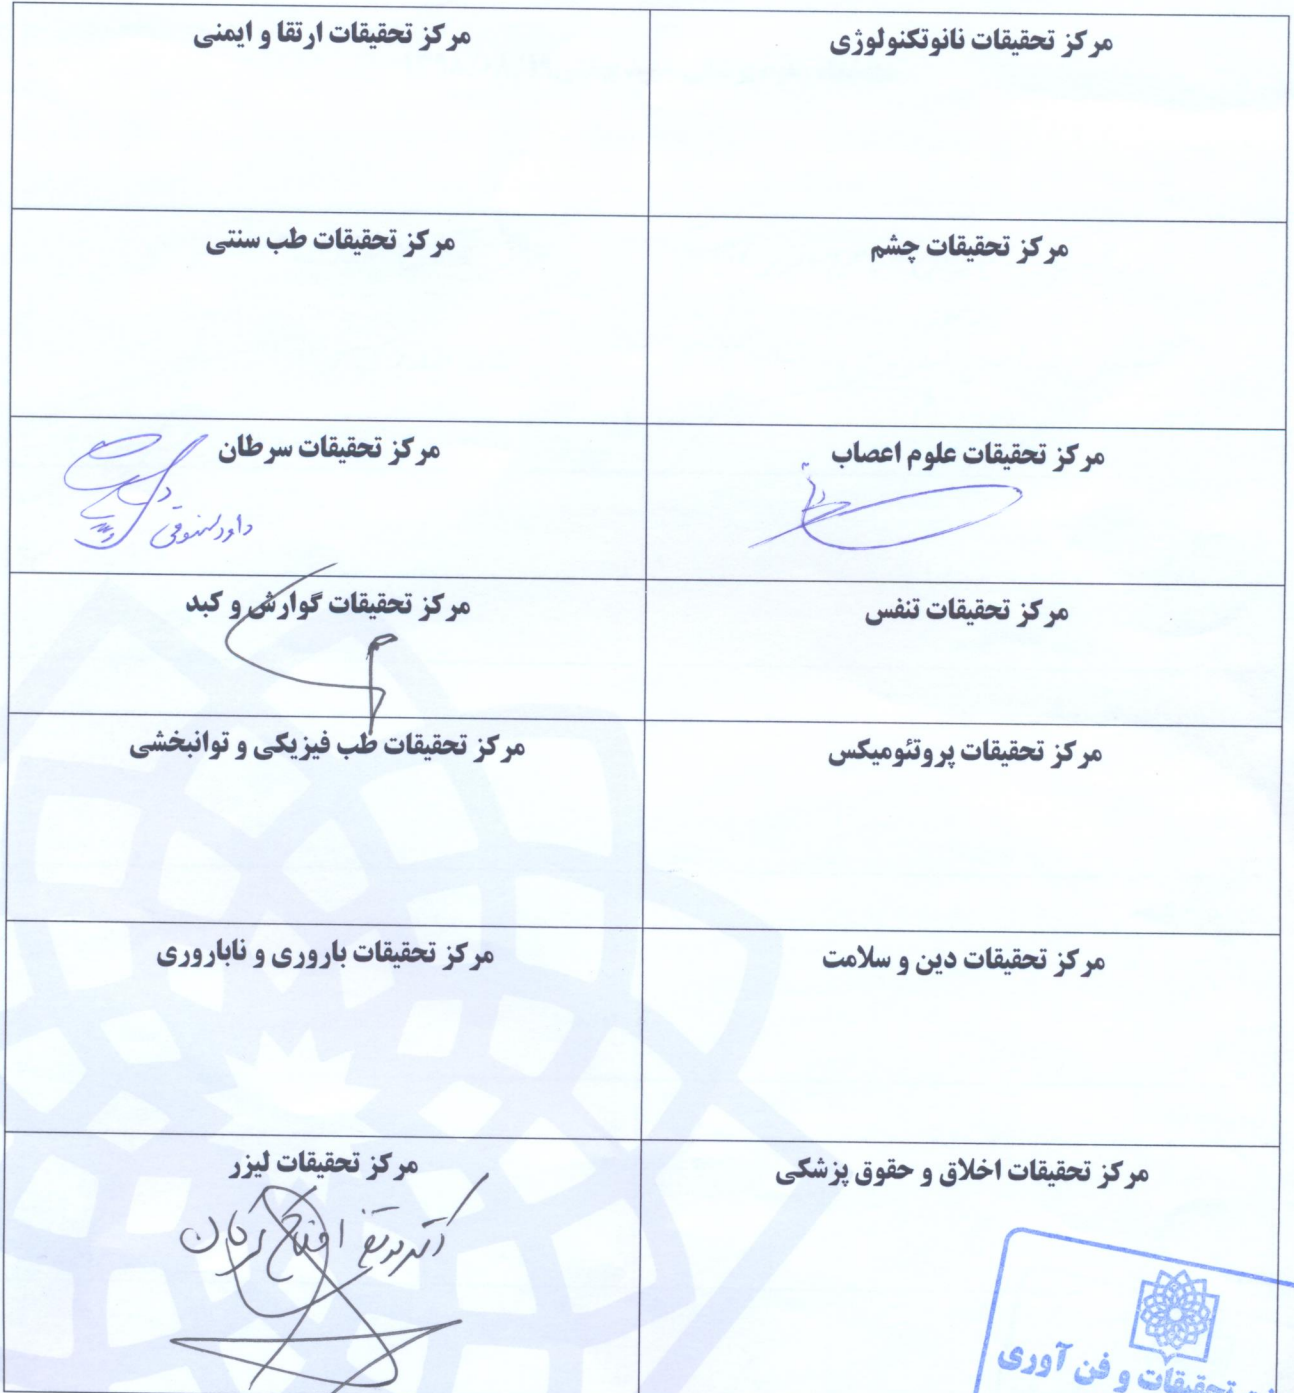 مرکز تحقیقات نانوتکنولوژی
مرکز تحقیقات ارتقا و ایمنی
مرکز تحقیقات چشم
مرکز تحقیقات طب سنتی
مرکز تحقیقات علوم اعصاب
مرکز تحقیقات سرطان
داود
مرکز تحقیقات تنفس
مرکز تحقیقات گوارش و کبد
مرکز تحقیقات پروتئومیکس
مرکز تحقیقات طب فیزیکی و توانبخشی
مرکز تحقیقات دین و سلامت
مرکز تحقیقات باروری و ناباروری
مرکز تحقیقات اخلاق و حقوق پزشکی
مرکز تحقیقات لیزر
تحقیقات و فن آوری